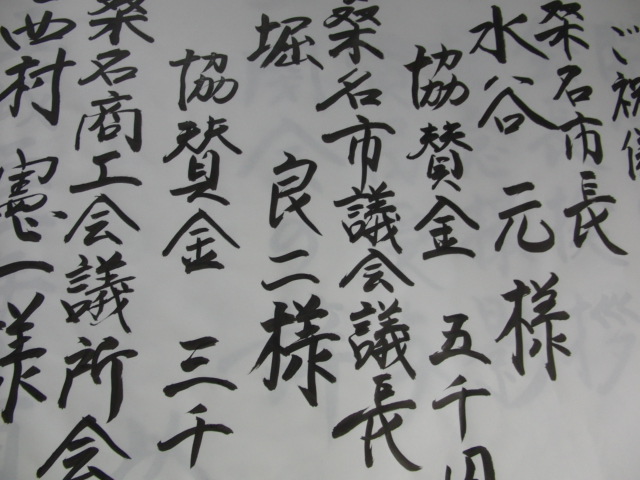 ご祝儀
桑名市長
水谷 元 様
協賛金 五千円
桑名市議会議長
堀 良二様
協賛金 三千
桑名商工会議所会
西村 憲一様